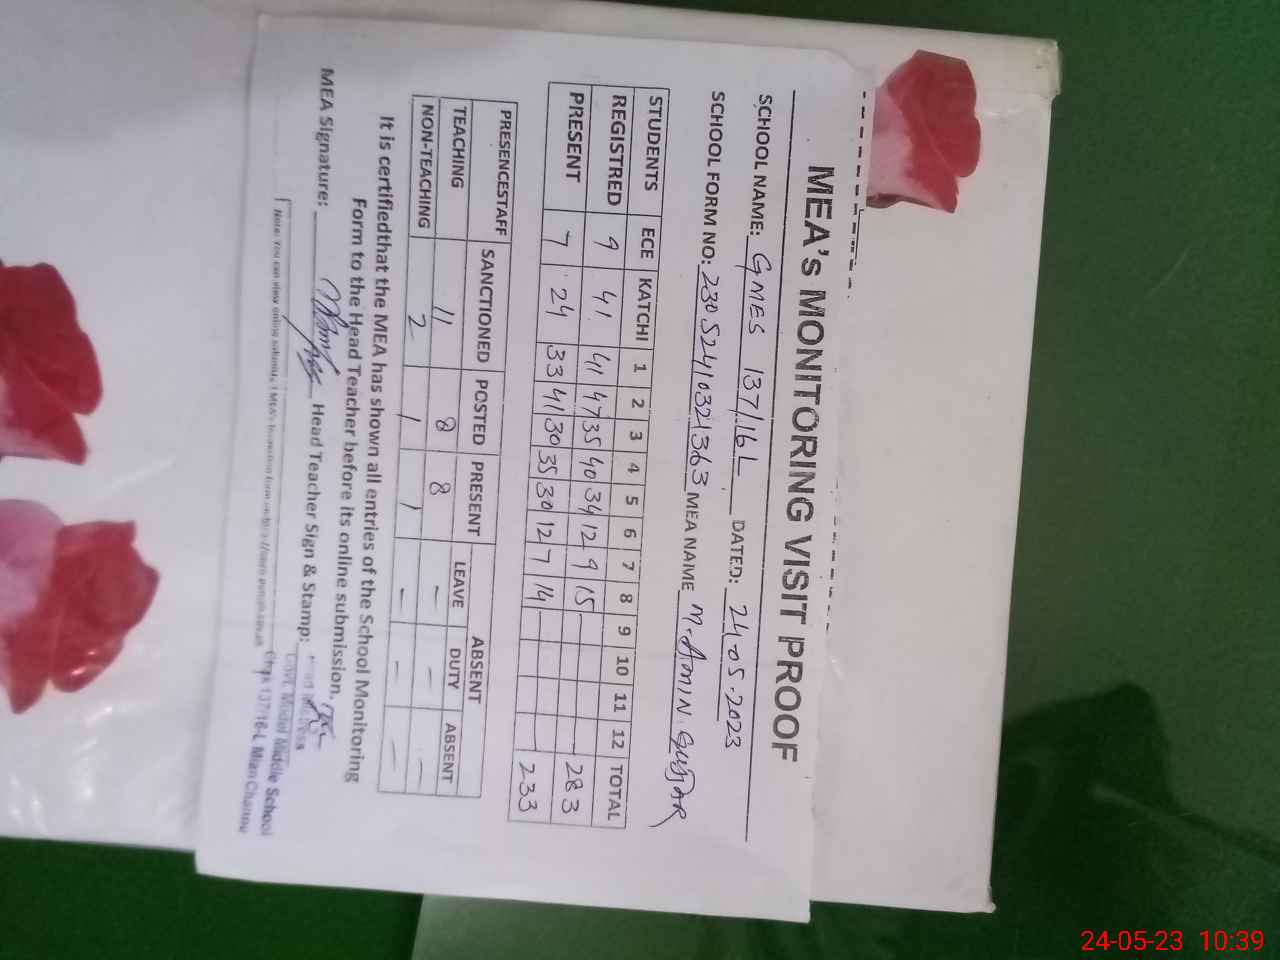 MEA's MONITORING VISIT PROOF
SCHOOL NAME: GMES 137/16L DATED: 24.05.2023
SCHOOL FORM NO: 23052410321363 MEA NAME M. AMIN GUJJAR
STUDENTS ECE KATCHI 1 2 3 4 5 6 7 8 9 10 11 12 TOTAL
REGISTRED 9 41 41 47 35 40 34 12 9 15 283
PRESENT 7 24 33 41 30 35 30 12 7 14 233
PRESENCESTAFF SANCTIONED POSTED PRESENT ABSENT
LEAVE DUTY ABSENT
TEACHING 11 8 8 - - -
NON-TEACHING 2 1 1 - - -
It is certifiedthat the MEA has shown all entries of the School Monitoring
Form to the Head Teacher before its online submission.
MEA Signature: Head Teacher Sign & Stamp:
Govt. Model Middle School
Chak 137/16-L Mian Channu
Note: You can view online
24-05-23 10:39